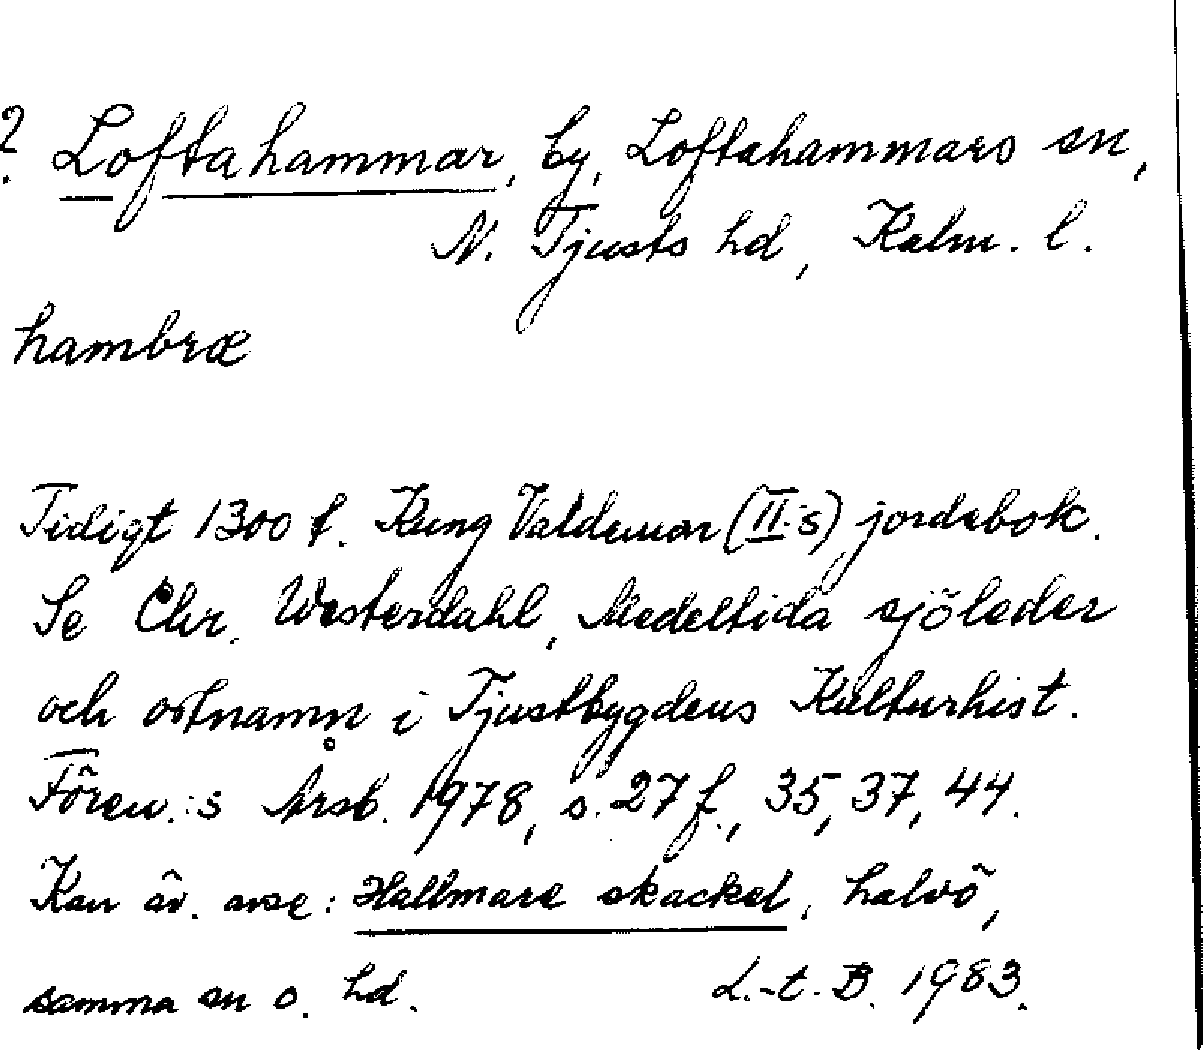 ? Loftahammar, by, Loftahammars sn,
N. Tjusts hd, Kalm. l.
hambræ
Tidigt 1300 t. Kung Valdemar (II:s) jordebok.
Se Chr. Westerdahl, Medeltida sjöleder
och ortnamn i Tjustbygdens Kulturhist.
Fören.:s Årsb. 1978, s. 27 f., 35, 37, 44.
Kan äv. avse: Hallmare skackel, halvö,
samma sn o. hd. L.-t. B. 1983.